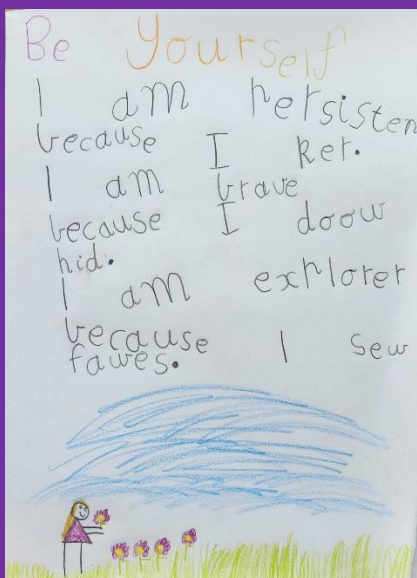 Be Yourself
I am persisten
because I ker.
I am brave
because I doow
hid.
I am explorer
because I sew
fawes.